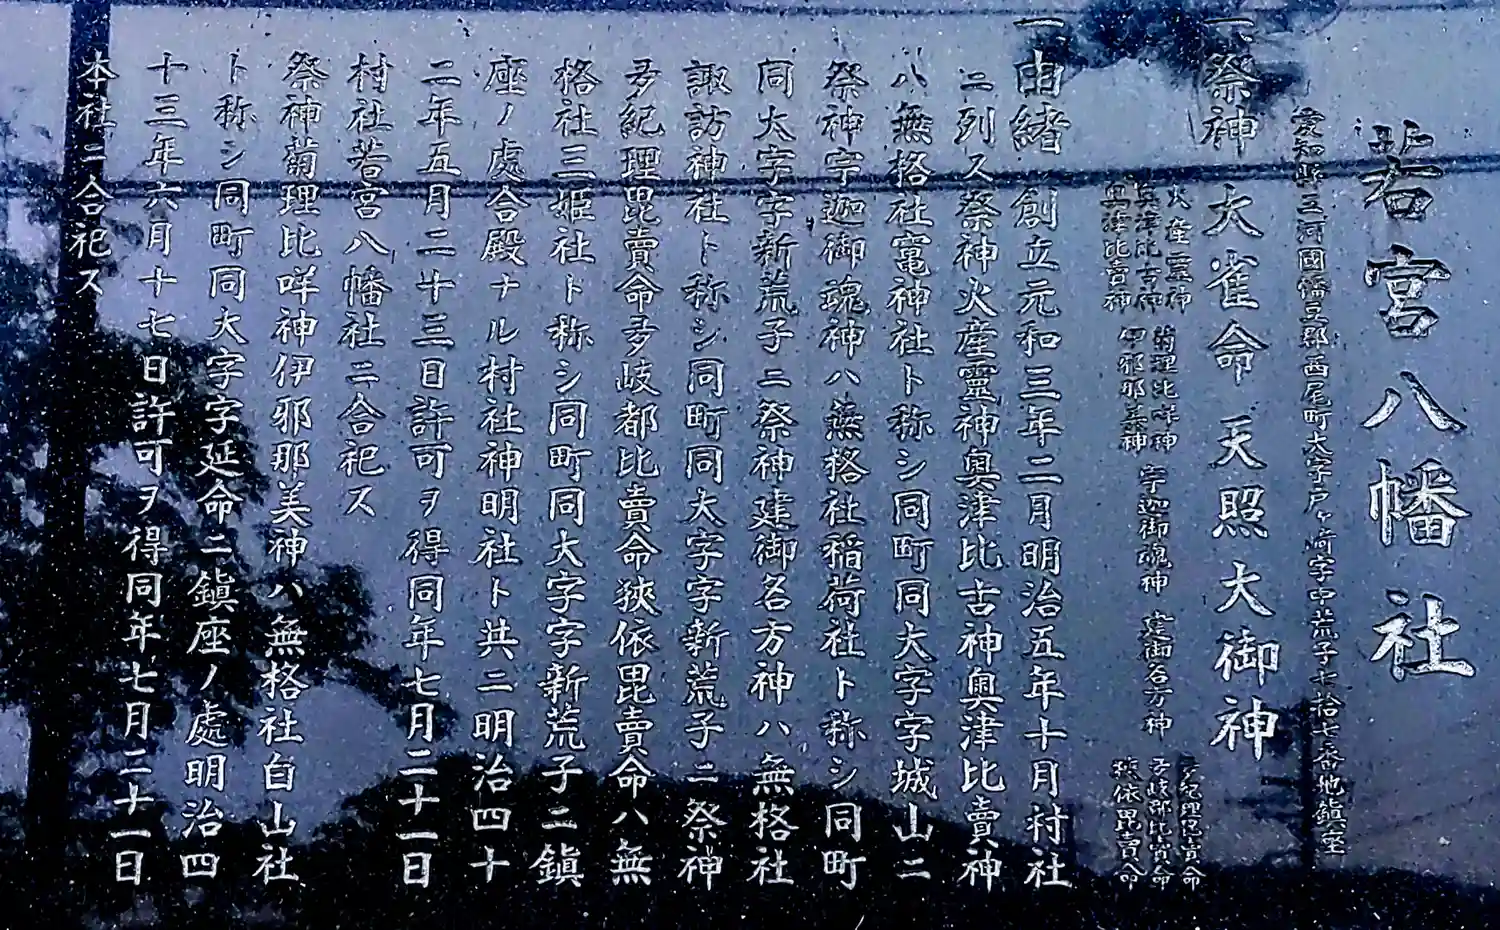 若宮八幡社
愛知縣三河國幡豆郡西尾町大字戸ヶ崎字中荒子七拾七番地鎮座
一祭神 大雀命 天照大御神
火産霊神
奥津比古神
奥津比賣神
菊理比咩神
伊邪那美神
宇迦御魂神
建御名方神
多紀理毘賣命
多岐都比賣命
狭依毘賣命
一由緒 創立元和三年二月明治五年十月村社
ニ列ス祭神火産靈神奥津比古神奥津比賣神
ハ無格社竃神社ト称シ同町同大字字城山ニ
祭神宇迦御魂神ハ無格社稲荷社ト称シ同町
同大字字新荒子ニ祭神建御名方神ハ無格社
諏訪神社ト称シ同町同大字字新荒子ニ祭神
多紀理毘賣命多岐都比賣命狹依毘賣命ハ無
格社三姫社ト称シ同町同大字字新荒子ニ鎮
座ノ處合殿ナル村社神明社ト共ニ明治四十
二年五月二十三日許可ヲ得同年七月二十一日
村社若宮八幡社ニ合祀ス
祭神菊理比咩神伊邪那美神ハ無格社白山社
ト称シ同町同大字字延命ニ鎮座ノ處明治四
十三年六月十七日許可ヲ得同年七月二十一日
本社ニ合祀ス